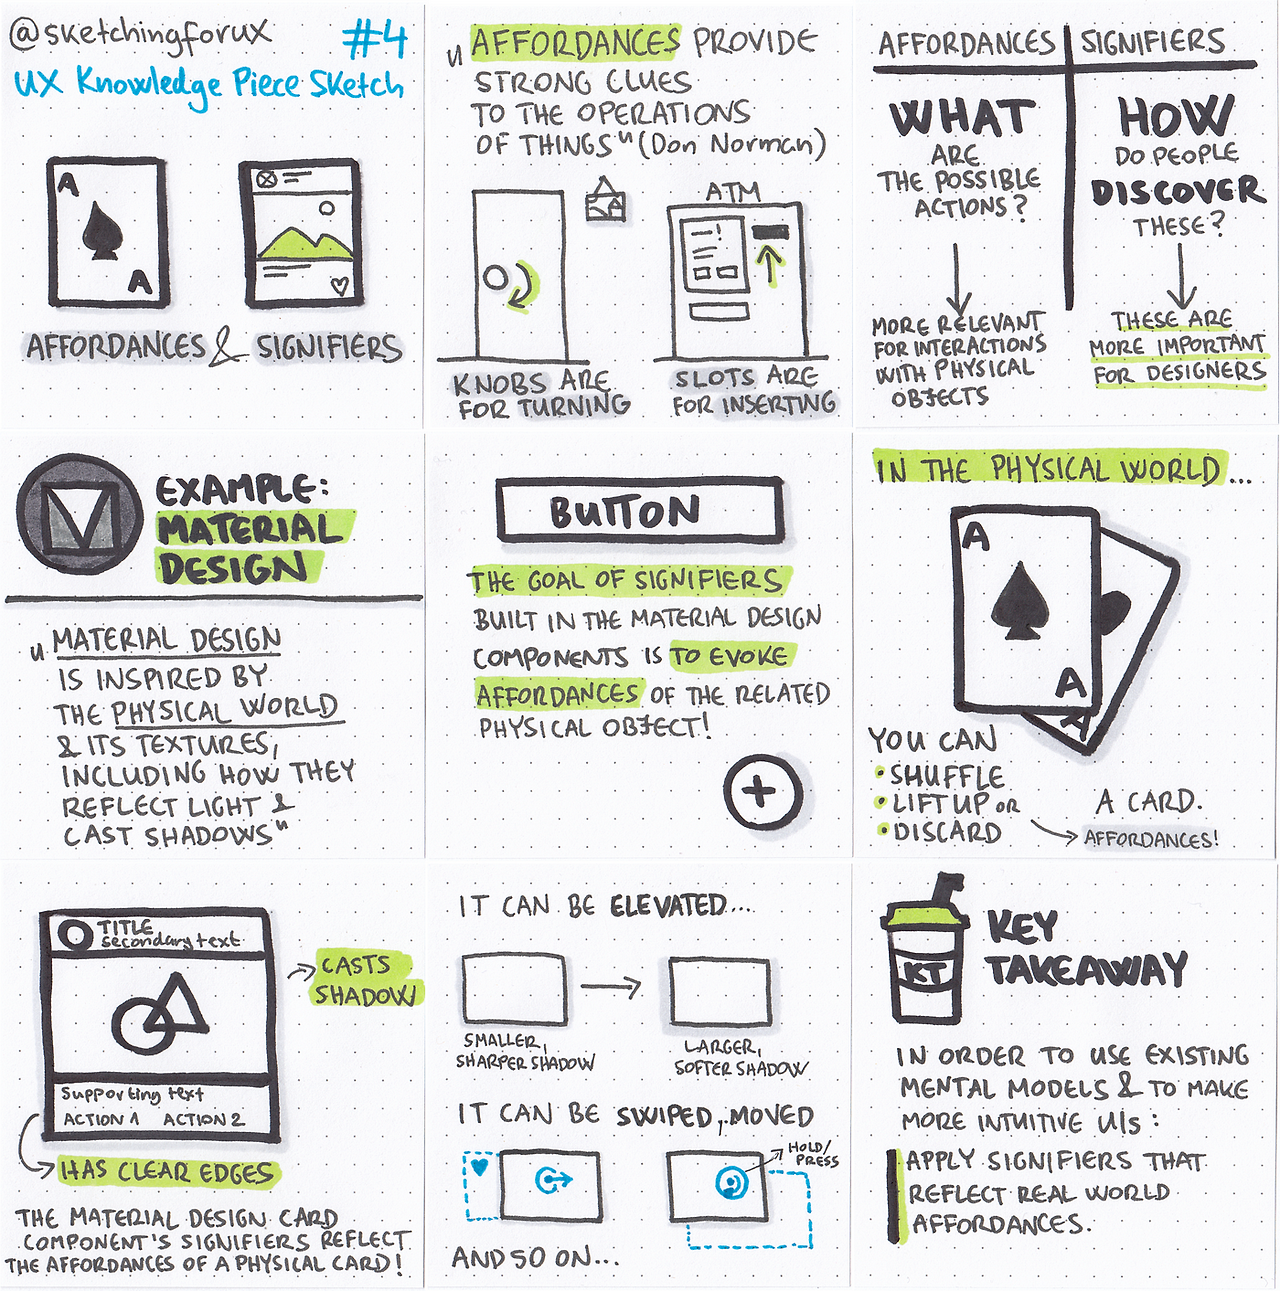 @sketchingforux
#4
UX Knowledge Piece Sketch
A
A
AFFORDANCES & SIGNIFIERS
"AFFORDANCES PROVIDE
STRONG CLUES
TO THE OPERATIONS
OF THINGS" (Don Norman)
ATM
KNOBS ARE
FOR TURNING
SLOTS ARE
FOR INSERTING
AFFORDANCES
SIGNIFIERS
WHAT
ARE
THE POSSIBLE
ACTIONS?
MORE RELEVANT
FOR INTERACTIONS
WITH PHYSICAL
OBJECTS
HOW
DO PEOPLE
DISCOVER
THESE?
THESE ARE
MORE IMPORTANT
FOR DESIGNERS
EXAMPLE:
MATERIAL
DESIGN
"MATERIAL DESIGN
IS INSPIRED BY
THE PHYSICAL WORLD
& ITS TEXTURES,
INCLUDING HOW THEY
REFLECT LIGHT &
CAST SHADOWS"
BUTTON
THE GOAL OF SIGNIFIERS
BUILT IN THE MATERIAL DESIGN
COMPONENTS IS TO EVOKE
AFFORDANCES OF THE RELATED
PHYSICAL OBJECT!
IN THE PHYSICAL WORLD...
A
A
A
YOU CAN
• SHUFFLE
• LIFT UP OR
• DISCARD
A CARD.
AFFORDANCES!
TITLE
secondary text
Supporting text
ACTION 1 ACTION 2
CASTS
SHADOW
HAS CLEAR EDGES
THE MATERIAL DESIGN CARD
COMPONENT'S SIGNIFIERS REFLECT
THE AFFORDANCES OF A PHYSICAL CARD!
IT CAN BE ELEVATED...
SMALLER,
SHARPER SHADOW
LARGER,
SOFTER SHADOW
IT CAN BE SWIPED, MOVED
HOLD/
PRESS
AND SO ON...
KT
KEY
TAKEAWAY
IN ORDER TO USE EXISTING
MENTAL MODELS & TO MAKE
MORE INTUITIVE UIs:
APPLY SIGNIFIERS THAT
REFLECT REAL WORLD
AFFORDANCES.